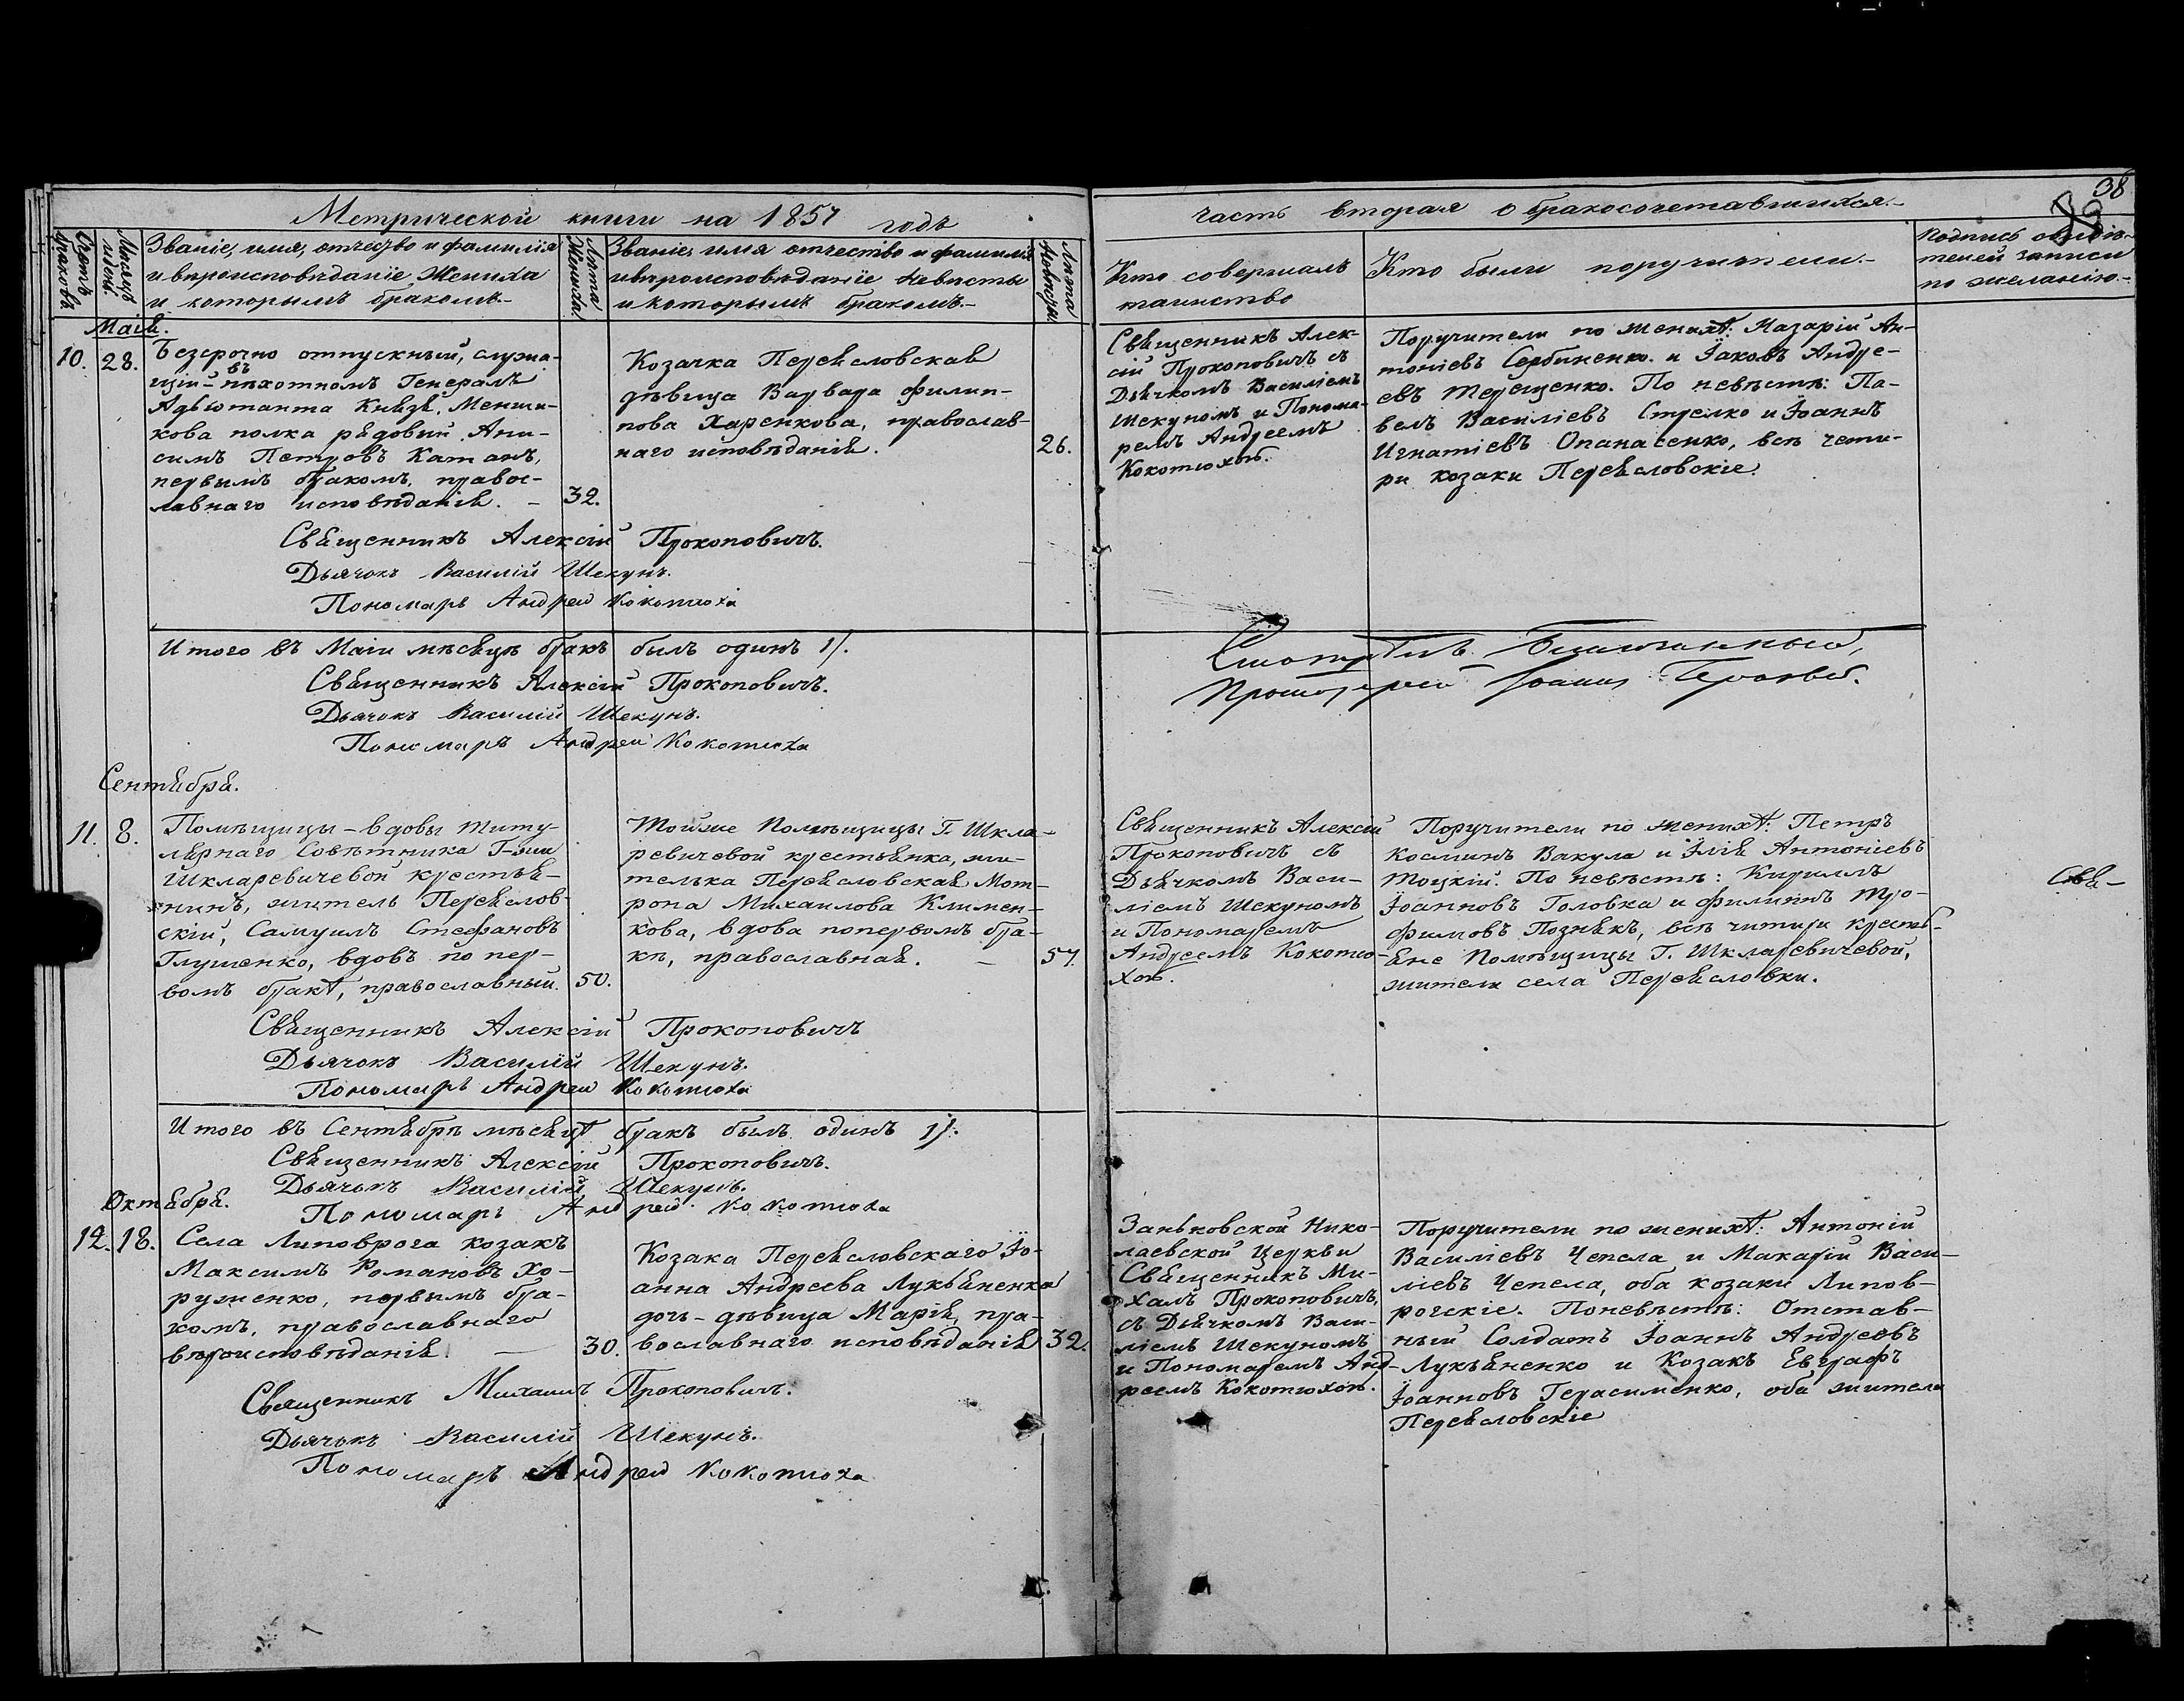 Метрической книги на 1857 годъ
часть вторая о бракосочетавшихся.
38
Счетъ браковъ
Мѣсяцъ и день.
Званіе, имя, отчество и фамилія
и вѣроисповѣданіе Жениха
и которымъ бракомъ
Лѣта Жениха
Званіе имя отчество и фамилія
и вѣроисповѣданіе Невѣсты
и которымъ бракомъ.
Лѣта Невѣсты
Кто совершалъ
таинство
Кто были поручители.
Подпись свидѣ-
телей записи
по желанію.
Маія.
10. 28.
Безсрочно отпускный, служа-
щій въ пѣхотномъ Генералъ
Адъютанта Князя Менши-
кова полка рядовый Они-
симъ Петровъ Катанъ,
первымъ бракомъ, правос-
лавнаго исповѣданія. – 32.
Козачка Переясловская
дѣвица Варвара Филип-
пова Харенкова, православ-
наго исповѣданія. 26.
Священникъ Алек-
сій Прокоповичъ съ
Дьячкомъ Василіемъ
Шекуномъ и Понома-
ремъ Андреемъ
Кокотюхою.
Поручители по женихѣ: Назарій Ан-
тоніевъ Сербиненко и Іаковъ Андре-
евъ Терещенко. По невѣстѣ: Па-
велъ Василіевъ Стрелко и Іоаннъ
Игнатіевъ Опанасенко, всѣ чети-
ри козаки Переясловскіе.
Священникъ Алексій Прокоповичъ.
Дьячокъ Василій Шекунъ.
Пономарь Андрей Кокотюха
Итого въ Маіи мѣсяцѣ бракъ былъ одинъ 1/.
Священникъ Алексій Прокоповичъ.
Дьячокъ Василій Шекунъ.
Пономарь Андрей Кокотюха
Смотрѣлъ Благочинный,
Протоіерей Іоаннъ
Сентября.
11. 8.
Помѣщицы – вдовы титу-
лярнаго Совѣтника Г-жи
Шкляревичевой крестья-
нинъ, житель Переяслов-
скій, Самуилъ Стефановъ
Глушенко, вдовъ по пер-
вомъ бракѣ, православный. 50.
Тойже Помѣщицы Г. Шкля-
ревичевой крестьянка, жи-
телька Переясловская Мот-
рона Михаилова Климен-
кова, вдова попервомъ бра-
кѣ, православная. – 57.
Священникъ Алексій
Прокоповичъ съ
Дьячкомъ Васи-
ліемъ Шекуномъ
и Пономаремъ
Андреемъ Кокотю-
хою.
Поручители по женихѣ: Петръ
Косминъ Вакула и Ілія Антоніевъ
Тоцкій. По невѣстѣ: Кириллъ
Іоанновъ Головка и Филипъ Тро-
фимовъ Познякъ, всѣ читири кресть-
яне Помѣщицы Г. Шкляревичевой,
жители села Переясловки.
Свя-
Священникъ Алексій Прокоповичъ
Дьячокъ Василій Шекунъ.
Пономарь Андрей Кокотюха
Итого въ Сентябрѣ мѣсяцѣ бракъ былъ одинъ 1/.
Священникъ Алексій Прокоповичъ.
Дьячокъ Василій Шекунъ.
Пономарь Андрей Кокотюха
Октября.
12. 18.
Села Липоврога козакъ
Максимъ Романовъ Хо-
руженко, первымъ бра-
комъ, православнаго
вѣроисповѣданія. – 30.
Козака Переясловскаго Іо-
анна Андреева Лукьяненка
дочь – дѣвица Марія, пра-
вославнаго исповѣданія 32.
Заньковской Нико-
лаевской Церкви
Священникъ Ми-
халъ Прокоповичъ,
съ Дьячкомъ Васи-
ліемъ Шекуномъ
и Пономаремъ Анд-
реемъ Кокотюхою.
Поручители по женихѣ: Антоній
Василіевъ Чепела и Макарій Васи-
ліевъ Чепела, оба козаки Липов-
рогскіе. Поневѣстѣ: Отстав-
ный Солдатъ Іоаннъ Андреевъ
Лукьяненко и Козакъ Евграфъ
Іоанновъ Герасименко, оба жители
Переясловскіе
Священникъ Михаилъ Прокоповичъ.
Дьячокъ Василій Шекунъ.
Пономарь Андрей Кокотюха